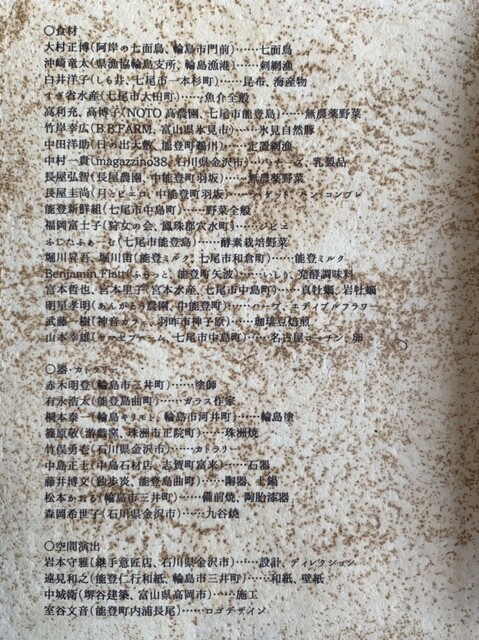 ○食材
大村正博(阿岸の七面鳥、輪島市門前)……七面鳥
沖崎竜太(県漁協輪島支所、輪島漁港)……刺網漁
白井洋子(しら井、七尾市一本杉町)……昆布、海産物
すぎ省水産(七尾市大田町)……魚介全般
高利充、高博子(NOTO 高農園、七尾市能登島)……無農薬野菜
竹岸幸広(B.B.FARM、富山県氷見市)……氷見自然豚
中田洋助(日の出大敷、能登町鵜川)……定置網漁
中村一貴(magazzino38、石川県金沢市)……チーズ、乳製品
長屋弘智(長屋農園、中能登町羽坂)……無農薬野菜
長屋圭尚(月とピエロ、中能登町羽坂)……バゲット、パン・コンプレ
能登新鮮組(七尾市中島町)……野菜全般
福岡富士子(狩女の会、鳳珠郡穴水町)……ジビエ
ふじたふぁーむ(七尾市能登島)……酵素栽培野菜
堀川昇吾、堀川宙(能登ミルク、七尾市和倉町)……能登ミルク
Benjamin Flatt(ふらっと、能登町矢波)……いしり、発酵調味料
宮本哲也、宮本里子(宮本水産、七尾市中島町)……真牡蠣、岩牡蠣
明星孝明(あんがとう農園、中能登町)……ハーブ、エディブルフラワー
武藤一樹(神音カフェ、羽咋市神子原)……珈琲豆焙煎
山本幸雄( 七尾市中島町)……名古屋コーチン、卵

○器・カトラリー
赤木明登(輪島市三井町)……塗師
有永浩太(能登島曲町)……ガラス作家
桐本泰一(輪島キリモト、輪島市河井町)……輪島塗
篠原敬(游戯窯、珠洲市正院町)……珠洲焼
竹俣勇壱(石川県金沢市)……カトラリー
中島正士(中島石材店、志賀町富来)……石器
藤井博文(独歩炎、能登島曲町)……陶器、土鍋
松本かおる(輪島市三井町)……備前焼、陶胎漆器
森岡希世子(石川県金沢市)……九谷焼

○空間演出
岩本守雅(継手意匠店、石川県金沢市)……設計、ディレクション
遠見和之(能登仁行和紙、輪島市三井町)……和紙、壁紙
中城衛(堺谷建築、富山県高岡市)……施工
室谷文音(能登町内浦長尾)……ロゴデザイン